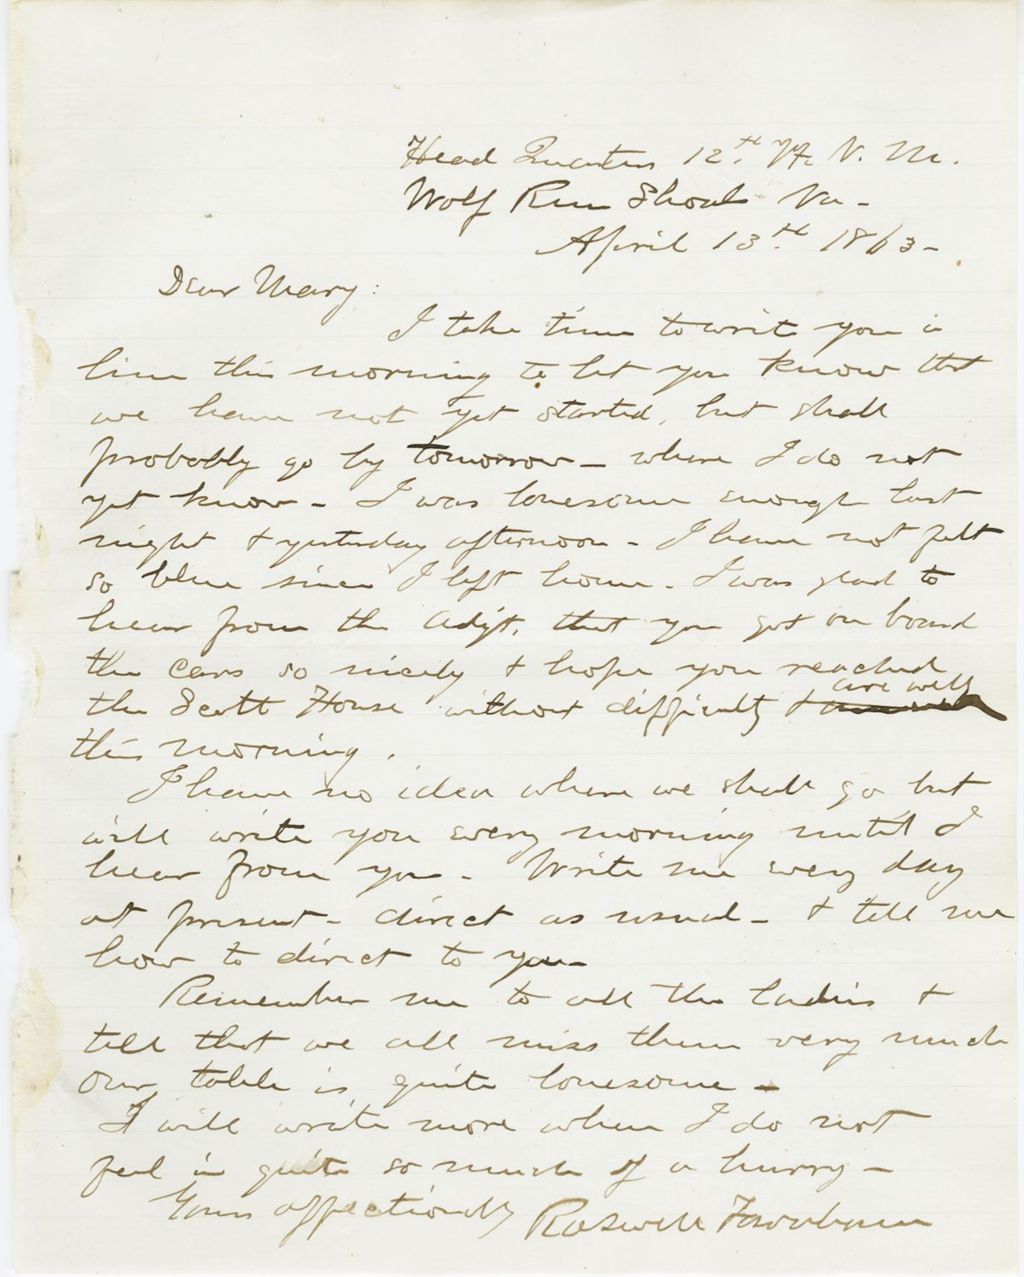 Head Quarters 12th Vt. V. M.
Wolf Run Shoals Va -
April 13th 1863 -
Dear Mary:
I take time to write you a
line this morning to let you know that
we have not yet started, but shall
probably go by tomorrow - where I do not
yet know - I was lonesome enough last
night & yesterday afternoon - I have not felt
so blue since I left home. I was glad to
hear from the Adjt. that you got on board
the cars so nicely & hope you reached
the Scott House without difficulty & are well
this morning.
I have no idea where we shall go but
will write you every morning until I
hear from you - Write me every day
at present - direct as usual - & tell me
how to direct to you -
Remember me to all the ladies &
tell that we all miss them very much
Our table is quite lonesome -
I will write more when I do not
feel in quite so much of a hurry -
Yours affectionally Roswell Farnham